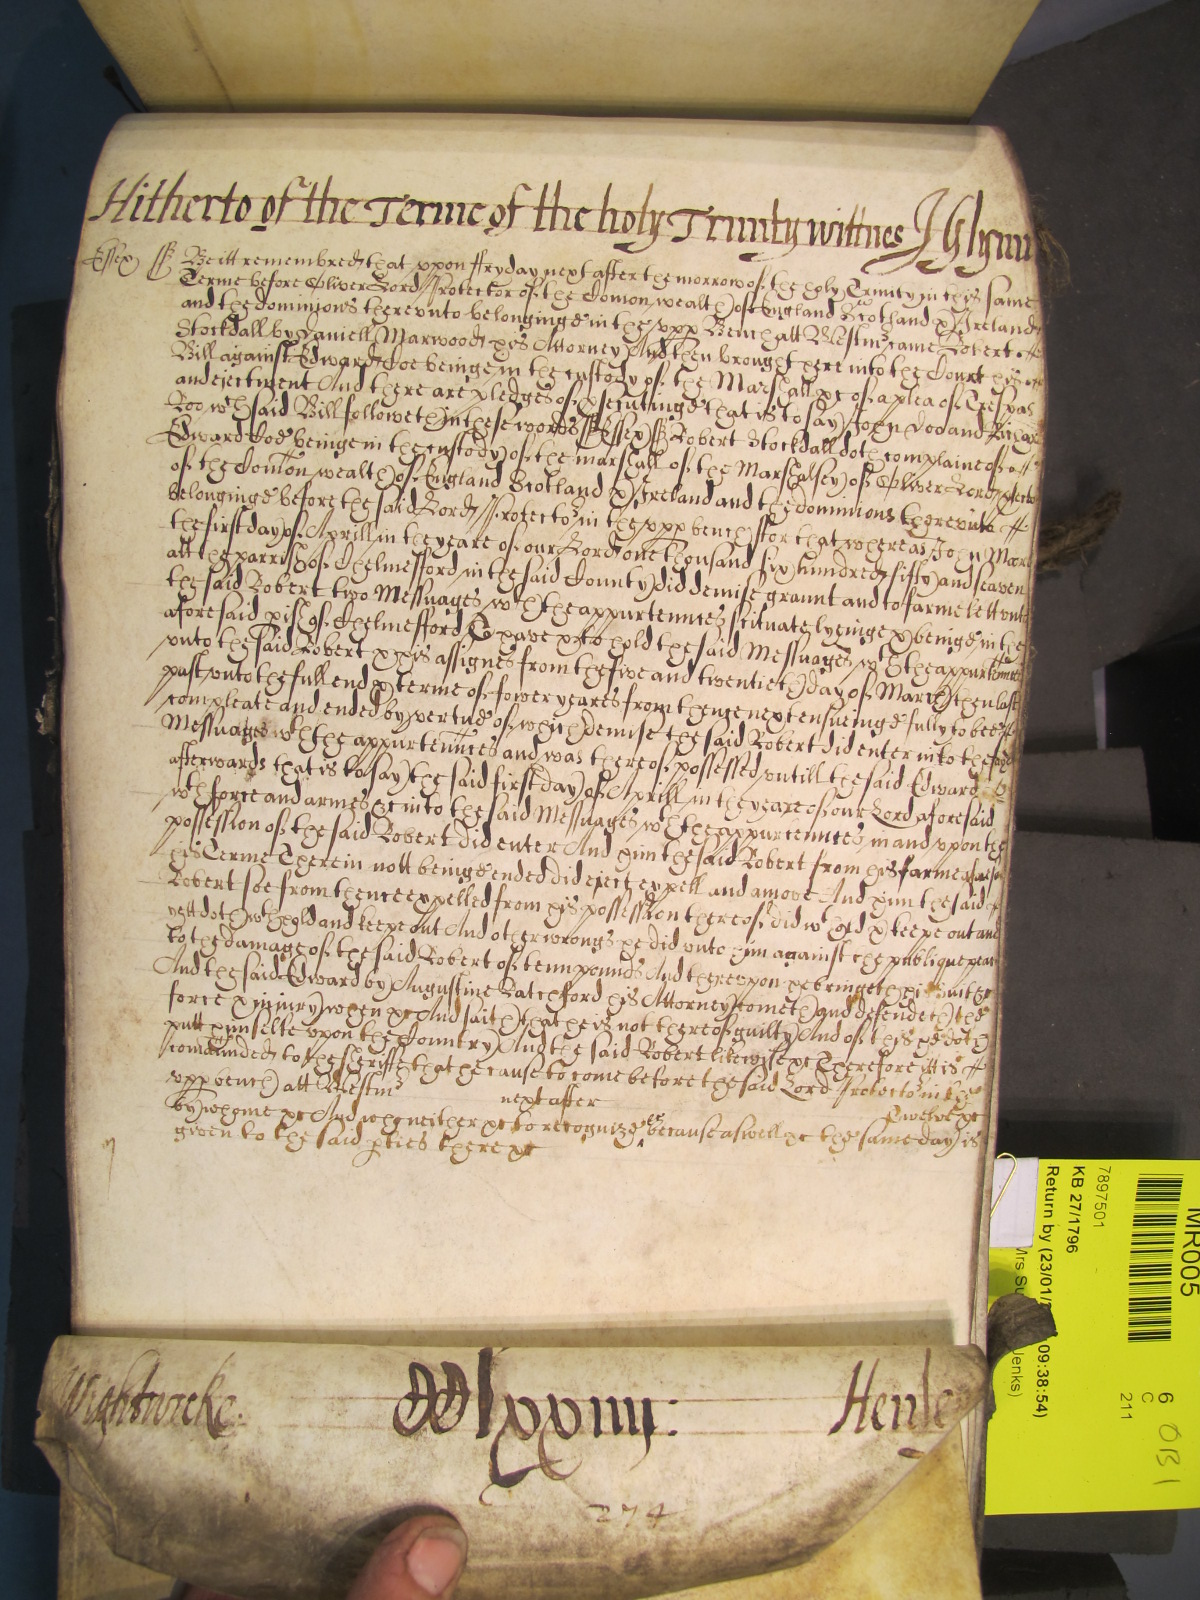 Hitherto of the Terme of the holy Trinity wittnes J Glynn
Essex ss Be itt remembred that upon ffryday next after the morrow of the holy Trinity in this same
Terme before Oliver Lord Protector of the Comon wealth of England Scotland & Ireland
and the dominions thereunto belonginge in the upp Bench att Westmr came Robert
Stockdall by Daniell Marwood his Attorney And then brought here into the Court his
Bill against Edward Coe beinge in the custody of the Marshall &c of a plea of Trespas
and ejectment And there are pledges of psecutinge that is to say John Doo and Richard
Roo wch said Bill followeth in these words ss Essex ss Robert Stockdall doth complaine of
Edward Coe beinge in the custody of the marshall of the Marshalsey of Oliver Lord
of the Comon wealth of England Scotland & Ireland and the dominions thereunto
belonginge before the said Lord Protector in the upp bench ffor that whereas John
the first day of Aprill in the yeare of our Lord one thousand six hundred fifty and seaven
att the parrish of Chelmesford in the said County did demise graunt and to farme lett unto
the said Robert two Messuages wth the appurtennces scituate lyeinge & beinge in the
aforesaid pish of Chelmesford To have & to hold the said Messuages wth the appurtennces
unto the said Robert & his assignes from the five and twentieth day of March then last
past unto the full end & terme of fower yeares from thence next ensueinge fully to bee
compleate and ended by vertue of which demise the said Robert did enter into the said
Messuages wth the appurtennces and was thereof possessed untill the said Edward
afterwards that is to say the said first day of Aprill in the yeare of our Lord aforesaid
wth force and armes &c into the said Messuages wth the appurtennces in and upon the
possession of the said Robert did enter And him the said Robert from his farme
his Terme Therein nott beinge ended did eject expell and amove And him the said
Robert soe from thence expelled from his possession thereof did wthhold & keepe out and
yett doth wthhold and keepe out And other wrongs he did unto him against the publique peace
to the damage of the said Robert of tenn pounds And thereupon he bringeth his suite
And the said Edward by Augustine Batchford his Attorney cometh and defendeth the
force & injury when &c And saith that he is not thereof guilty And of this he doth
putt himselfe upon the Country And the said Robert likewise &c Therefore itt is
comaunded to the Sheriffe that he cause to come before the said Lord Protector in the
upp bench att Westmr next after Twelve &c
by whome &c And who neither &c to recognize &c because aswell &c the same day is
given to the said pties there &c
Wightwicke:
CClxxiiij:
Henle
274
MR005
7897501
KB 27/1796
Return by (23/01/ 09:38:54)
Jenks)
6
C
211
OB1